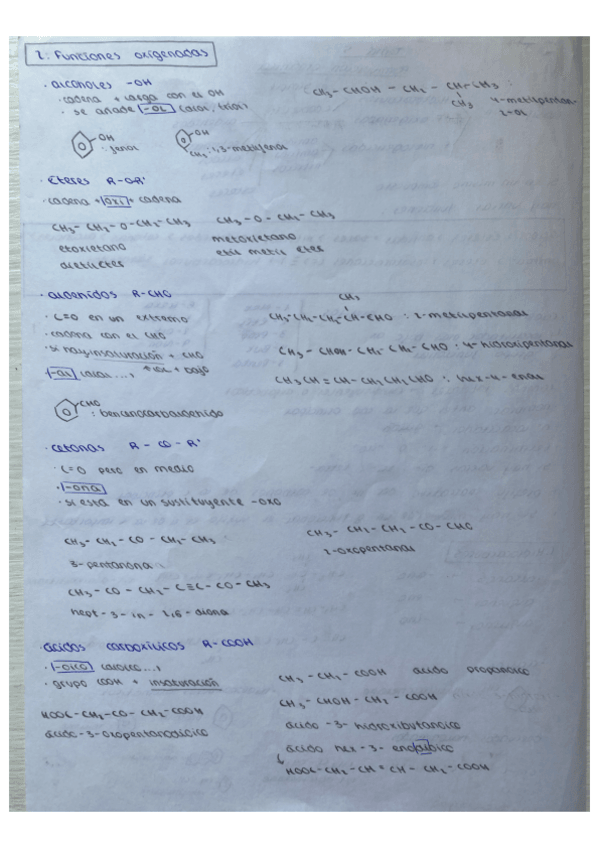 2: Funciones oxigenadas
· alcoholes -OH
· cadena + larga con el OH
· se añade -OL (diol, triol)
CH3 - CHOH - CH2 - CH - CH3 :
CH3 4-metilpentan-
2-ol
OH : fenol
OH CH3 : 1,3-metilfenol
· Éteres R-OR'
· cadena + oxi + cadena
CH3 - CH2 - O - CH2 - CH3
etoxietano
CH3 - O - CH2 - CH3
metoxietano
etil metil eter
· aldehidos R-CHO
· C=O en un extremo
· cadena con el CHO
· si hay insaturación + CHO
-al
+ bajo
CH3
CH3-CH2-CH2-CH-CHO : 2-metilpentanal
CH3 - CHOH - CH2 - CH2 - CHO : 4-hidroxipentanal
CH3 CH = CH - CH2 CH2 CHO : hex-4-enal
CHO : bencenocarbaldehido
· cetonas R - CO - R'
· C=O pero en medio
· -ona
· si está en un sustituyente -oxo
CH3 - CH2 - CO - CH2 - CH3
3-pentanona
CH3 - CH2 - CH2 - CO - CHO
2-oxopentanal
CH3 - CO - CH2 - C≡C - CO - CH3
hept - 3 - in - 2,6 - diona
· ácidos carboxílicos R-COOH
· -oico
· grupo COOH + insaturación
CH3 - CH2 - COOH ácido propanoico
CH3 - CHOH - CH2 - COOH
ácido -3- hidroxibutanoico
HOOC-CH2-CO-CH2-COOH
ácido-3-oxopentanodioico
ácido hex - 3- enodioico
HOOC-CH2-CH=CH-CH2-COOH